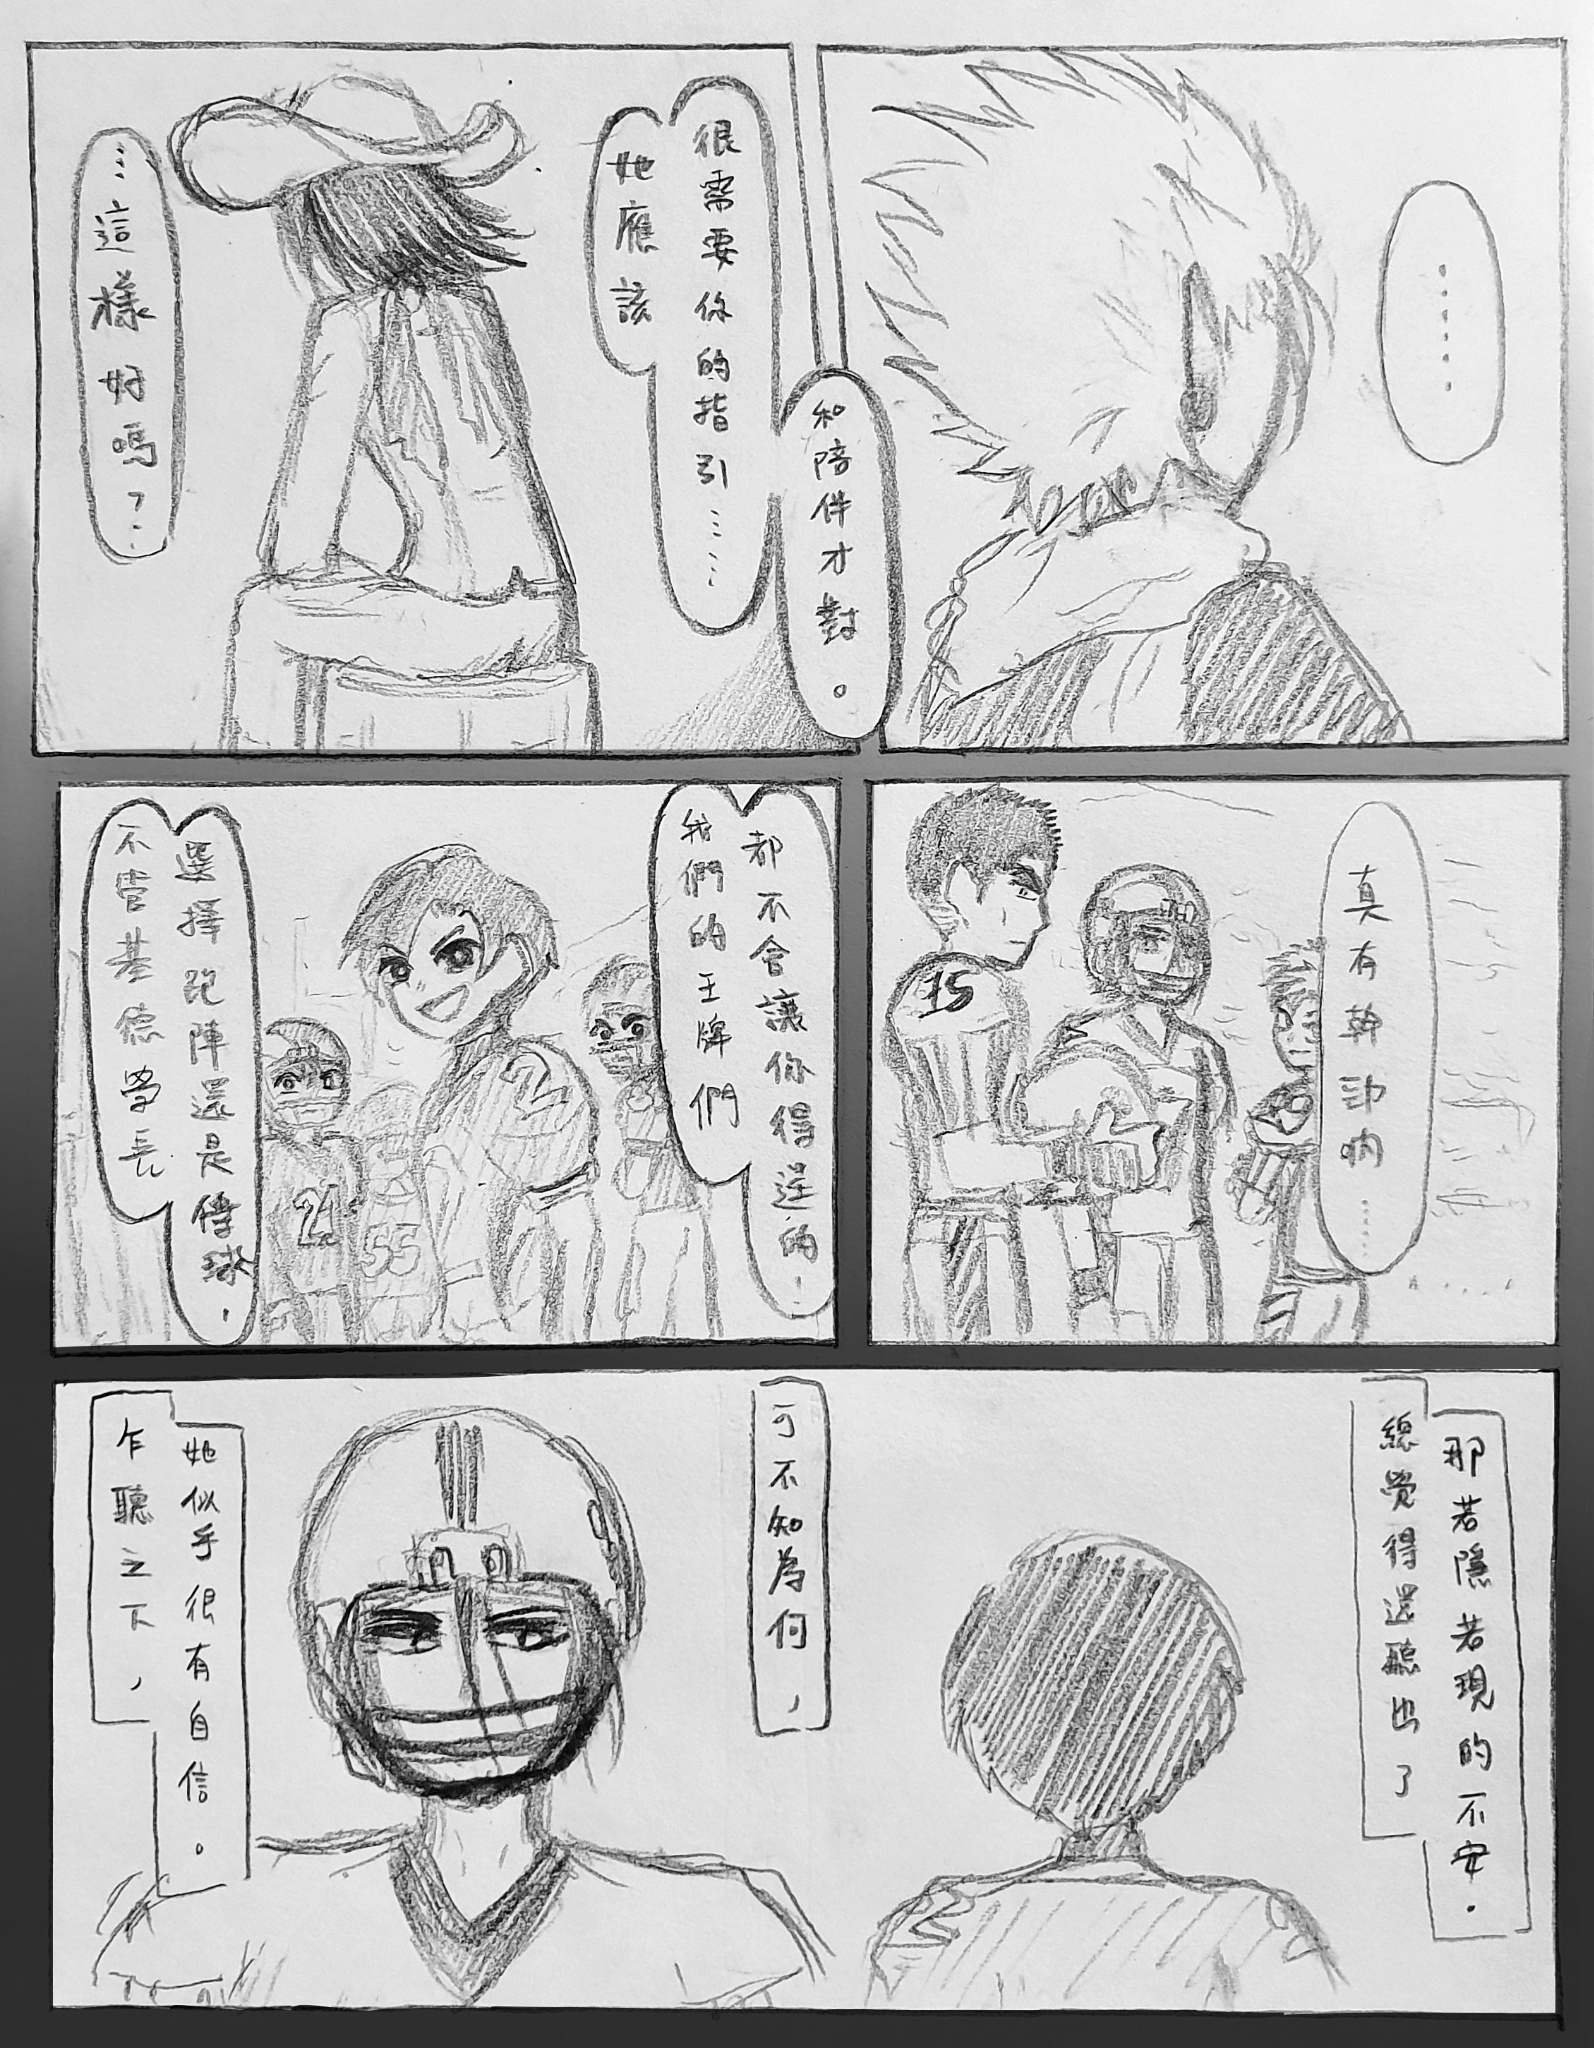 …這樣好嗎？…
她應該
很需要你的指引……
和陪伴才對。
……
不管基德學長
選擇跑陣還是傳球，
我們的王牌們
都不會讓你得逞的！
21
55
2
15
真有幹勁吶……
乍聽之下，
她似乎很有自信。
可不知為何，
總覺得還聽出了
那若隱若現的不安。